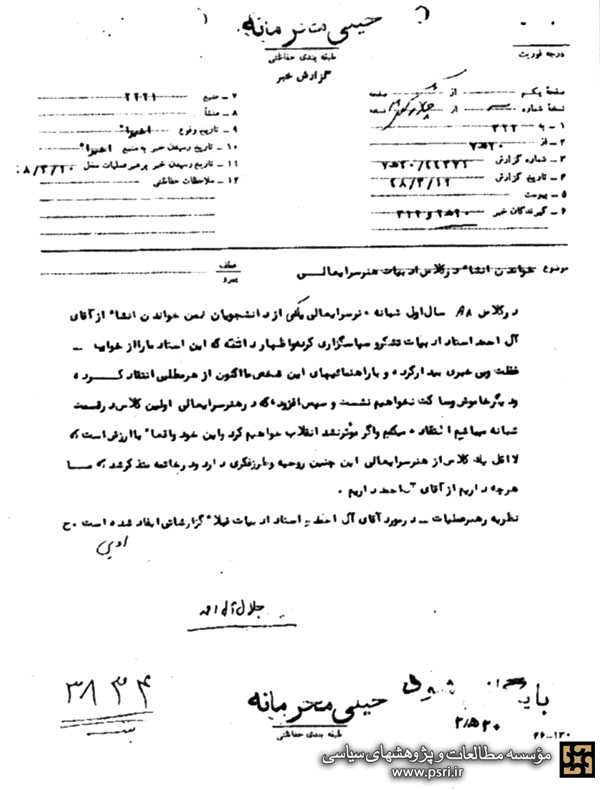 خیلی محرمانه
طبقه بندی حفاظتی
گزارش خبر
درجه فوریت
صفحه یکم از صفحه
نسخه شماره از نسخه
۱ ـ به ۳۲۲
۲ ـ از ۲۰ه‍۷
۳ ـ شماره گزارش
۴ ـ تاریخ گزارش
۵ ـ پیوست
۶ ـ گیرندگان خبر
۷ ـ منبع ۲۲۲۱
۸ ـ منشأ
۹ ـ تاریخ وقوع اخیرا"
۱۰ ـ تاریخ رسیدن خبر به منبع اخیرا"
۱۱ ـ تاریخ رسیدن خبر برهبر عملیات محل
۱۲ ـ ملاحظات حفاظتی
موضوع خواندن انشاء در کلاس ادبیات هنرسرایعالی
عطف
پیرو
در کلاس A۸ سال اول شبانه هنرسرایعالی یکی از دانشجویان ضمن خواندن انشاء از آقای
آل احمد استاد ادبیات تشکر و سپاسگزاری کرده و اظهار داشته که این استاد ما را از خواب
غفلت و بی خبری بیدار کرده و با راهنمائیهای این شخص ما اکنون از هر مطلبی انتقاد کرده
و دیگر خاموش و ساکت نخواهیم نشست و سپس افزوده که در هنرسرایعالی اولین کلاس در قسمت
شبانه میباشیم انتقاد میکنیم و اگر موثر نشد انقلاب خواهیم کرد و این خود واقعا" با ارزش است که
لااقل یک کلاس از هنرسرایعالی این چنین روحیه و طرز فکری دارد و در خاتمه متذکر شد که ما
هر چه داریم از آقای آل احمد داریم .
نظریه رهبر عملیات ـ در مورد آقای آل احمد استاد ادبیات قبلا" گزارشاتی ایفاد شده است . ح
جلال آل احمد
۳۸۳۴
خیلی محرمانه
طبقه بندی حفاظتی
۲۰ه‍۲
۶۶-۱۲۰
مؤسسه مطالعات و پژوهشهای سیاسی
www.psri.ir